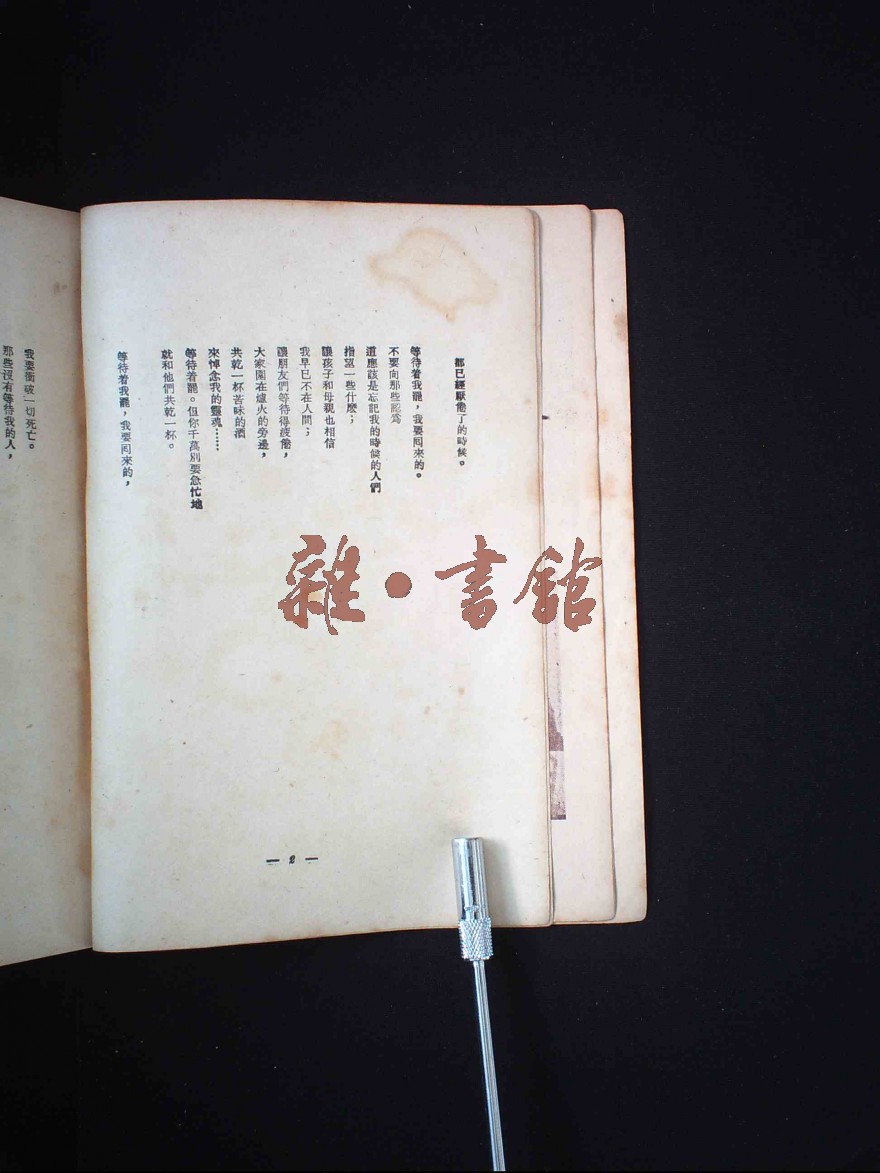 都已經厭倦了的時候。
等待着我罷，我要囘來的。
不要向那些認爲
道應該是忘記我的時候的人們
指望一些什麽；
讓孩子和母親也相信
我早已不在人間；
讓朋友們等待得疲倦，
大家圍在爐火的旁邊，
共乾一杯苦味的酒
來悼念我的靈魂……
等待着罷。但你千萬別要急忙地
就和他們共乾一杯。
等待着我罷，我要囘來的，
— 2 —
我要衝破一切死亡。
那些沒有等待我的人，
雜·書館